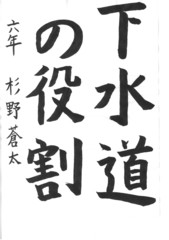 下水道
の役割
六年 杉野蒼太